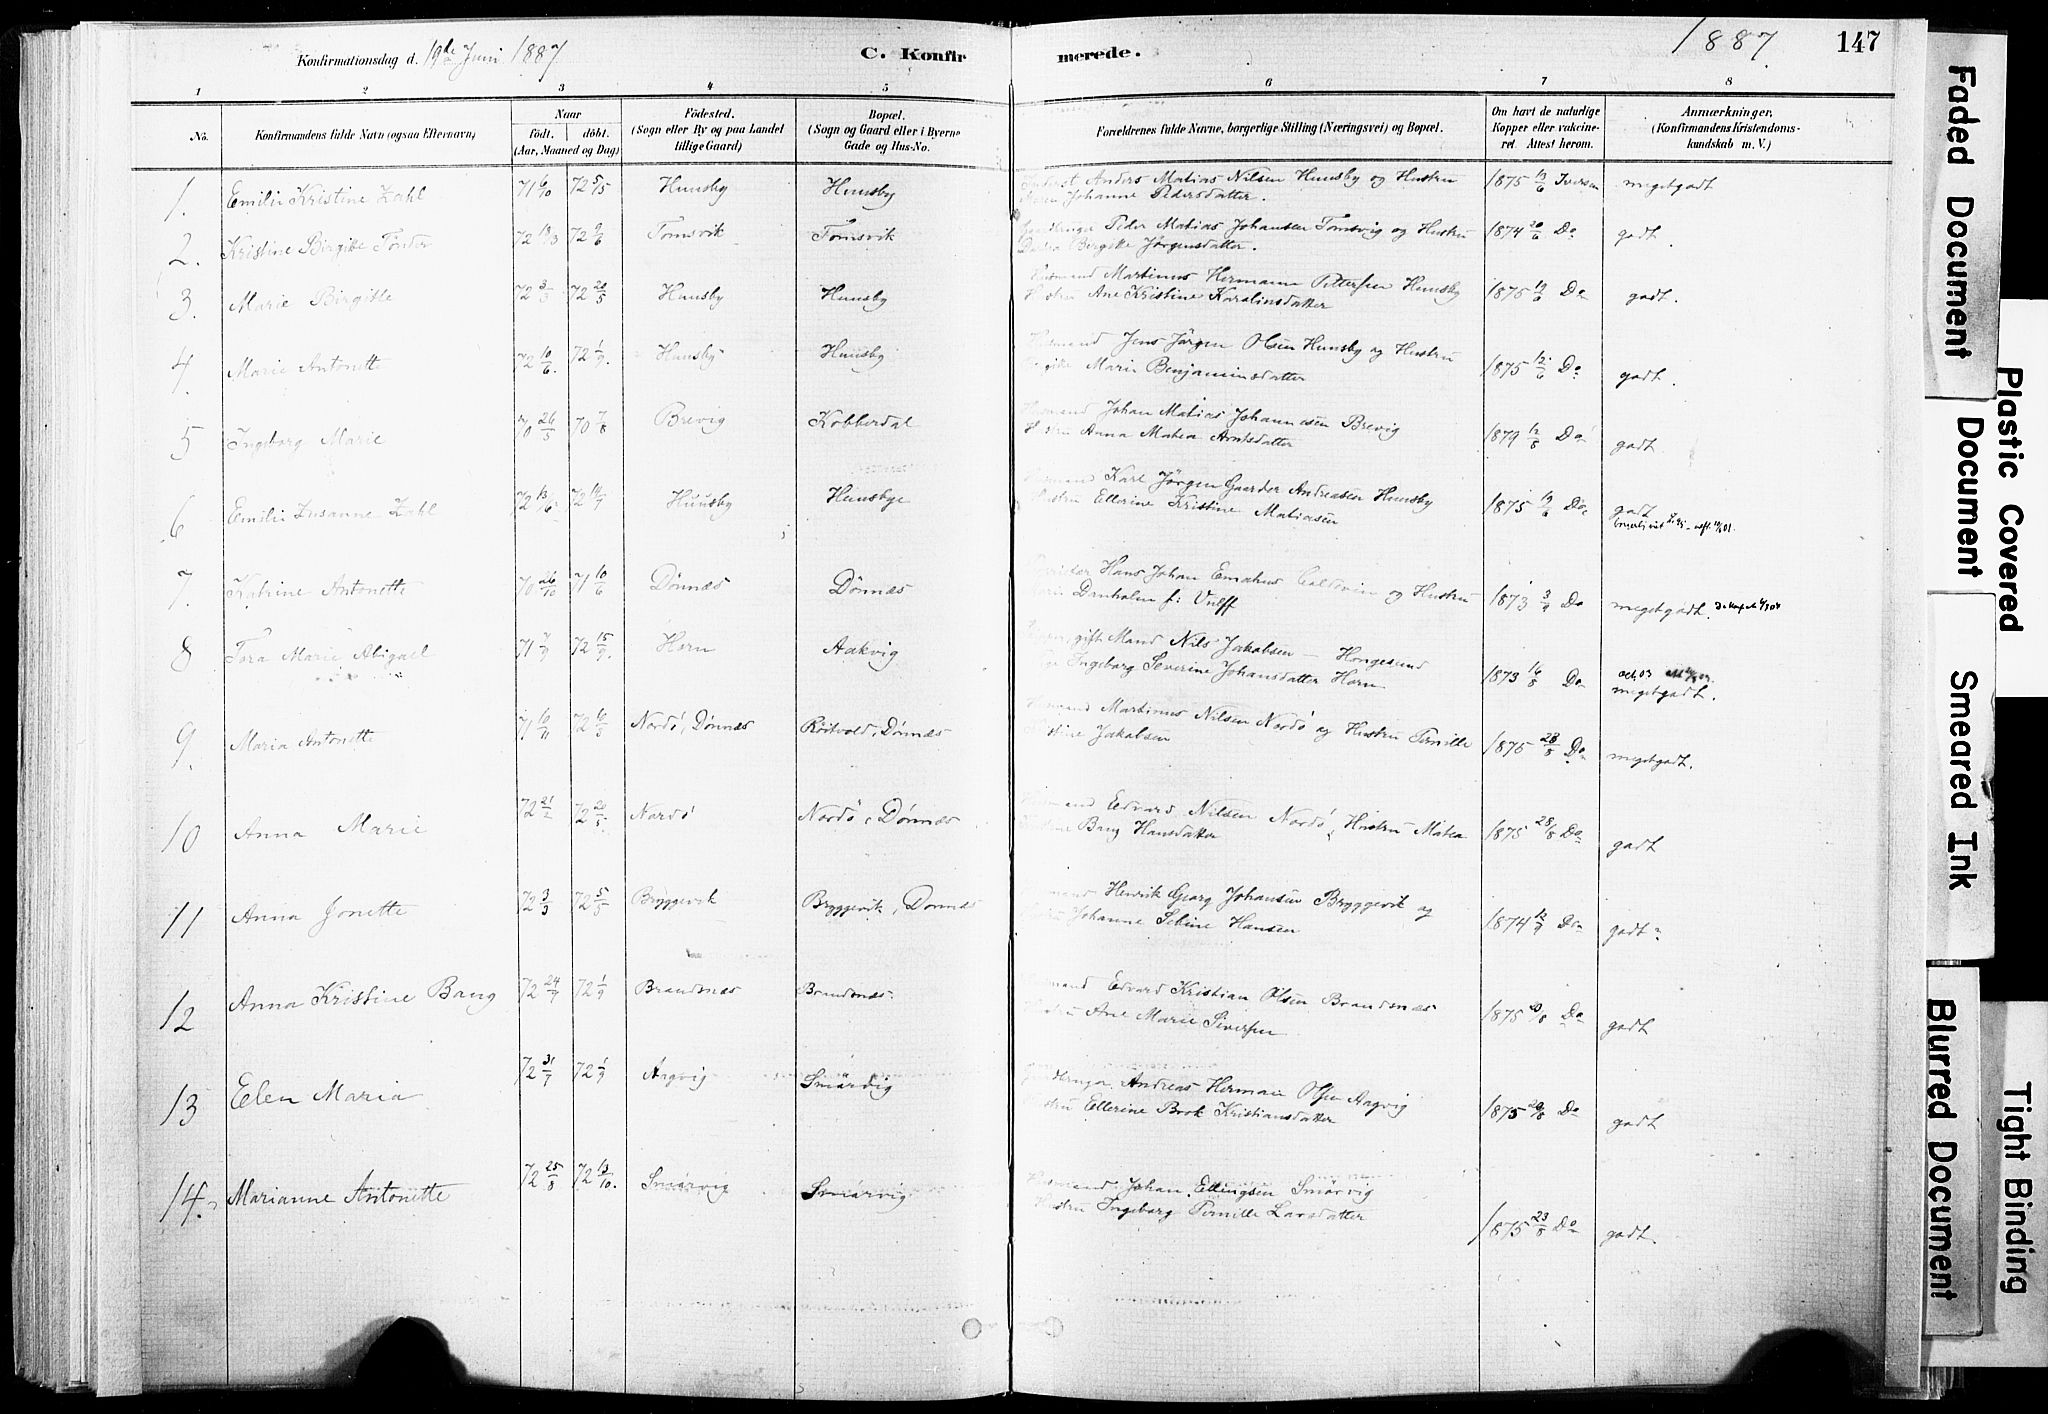 Konfirmationsdag d. 19de Juni 1887
C. Konfir merede.
1887 147
1 2 3 4 5 6 7 8
No.
Konfirmandens fulde Navn (ogsaa Efternavn)
Naar
født. døbt.
(Aar, Maaned og Dag)
Fødested.
(Sogn eller By og paa Landet
tillige Gaard)
Bopæl.
(Sogn og Gaard eller i Byerne
Gade og Hus-No.
Forældrenes fulde Navne, borgerlige Stilling (Næringsvei) og Bopæl.
Om havt de naturlige
Kopper eller vakcine-
ret. Attest herom.
Anmærkninger,
(Konfirmandens Kristendoms-
kundskab m. V.)
1. Emilie Kristine Zahl 71 6/10 72 5/5 Huusby Huusby Anders Matias Nilsen Huusby og Hustru
Johanne Pedersdatter. 1875 19/6 Iversen megetgodt
2. Kristine Birgitte Tønder 72 72 9/6 Tomsvik Tomsvik Peder Matias Johansen Tomsvig og Hustru
Birgitte Jørgensdatter. 1874 20/6 Do godt.
3. Marie Birgitte 72 3/3 72 20/5 Huusby Huusby Martinus Hermann Pettersen Huusby
Ane Kristine Karolinsdatter 1875 19/6 Do godt.
4. Marie Antonette 72 10/6. 72 1/9. Huusby Huusby Jens Jørgen Olsen Huusby og Hustru
Marie Benjaminsdatter 1875 12/6 Do godt.
5 Ingeborg Marie 70 26/5 70 7/8 Brevig Kobberdal Johan Matias Johannesen Brevig
Anna Matea Arntsdatter 1879 12/8 Do godt.
6 Emilie Susanne Zahl 72 13/6. 72 14/7 Huusby Huusbye Karl Jørgen Gaarder Andreasen Huusby
Hustru Ellerine Kristine Matiasen 1875 19/6 Do godt
7. Katrine Antonette 70 26/10 71 10/6 Dönnæs Dönnæs Hans Johan Emahus og Hustru
Danholm f: Vulff 1873 3/9 Do megetgodt.
8 Tora Marie Abigael 71 7/9 72 15/9. Horn Aakvig gift Mand Nils Jakobsen — Hongesund
Ingeborg Severine Johansdatter Horn 1873 16/8 Do megetgodt.
9. Maria Antonette 71 10/11 72 10/5 Nordö, Dønnæs Röitvold, Dønnæs Martinus Nilsen Nordö og Hustru Pernille
Jakobsen 1875 28/8 Do megetgodt.
10 Anna Marie 72 72 20/5. Nordö Nordö, Dønnæs Edvard Nilsen Nordö, Hustru Matea
Bang Hansdatter 1875 28/8 Do godt
11 Anna Jonette 72 3/3 72 5/5 Bryggevik Bryggevik, Dønnæs Henrik Georg Johansen Bryggevik og
Johanne Sebine Hansen 1874 12/9 Do godt
12 Anna Kristine Bang 72 24/7 72 1/9 Brandsnæs Brandsnæs. Edvard Kristian Olsen Brandsnæs
Ane Marie Siversen 1875 20/8 Do godt
13 Elen Maria 72 31/7 72 1/9 Aagvig Smörvig Andreas Herman Olsen Aagvig
Ellerine Brok Kristiansdatter 1875 20/8 Do godt
14. Marianne Antonette 72 25/8 72 13/10. Smörvig Smörvig Johan Ellingsen Smörvig
Hustru Ingeborg Pernille Larsdatter 1875 23/8 Do godt.
Faded Document
Plastic Covered Document
Smeared Ink
Blurred Document
Tight Binding